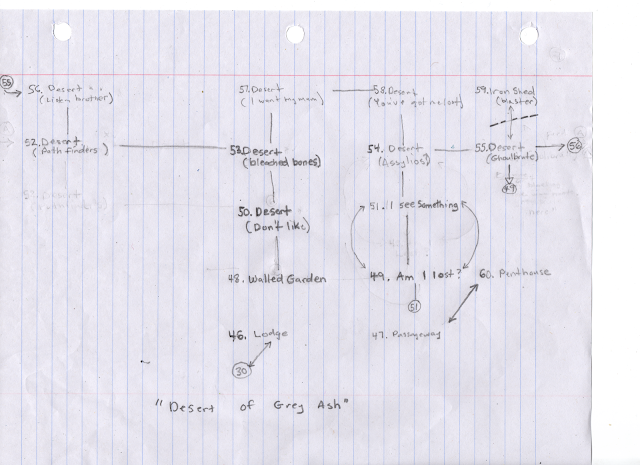 55
56. Desert
(Listen brother)
57. Desert
(I want my mom)
58. Desert
(You've got me lost)
59. Iron Shed
(Master)
52. Desert
(Path finders)
53. Desert
(bleached bones)
54. Desert
(Assylios)
55. Desert
(Ghoulbrute)
56
49
50. Desert
(Don't like)
51. I see something
48. Walled Garden
49. Am I lost?
60. Penthouse
51
46. Lodge
47. Passageway
30
"Desert of Grey Ash"